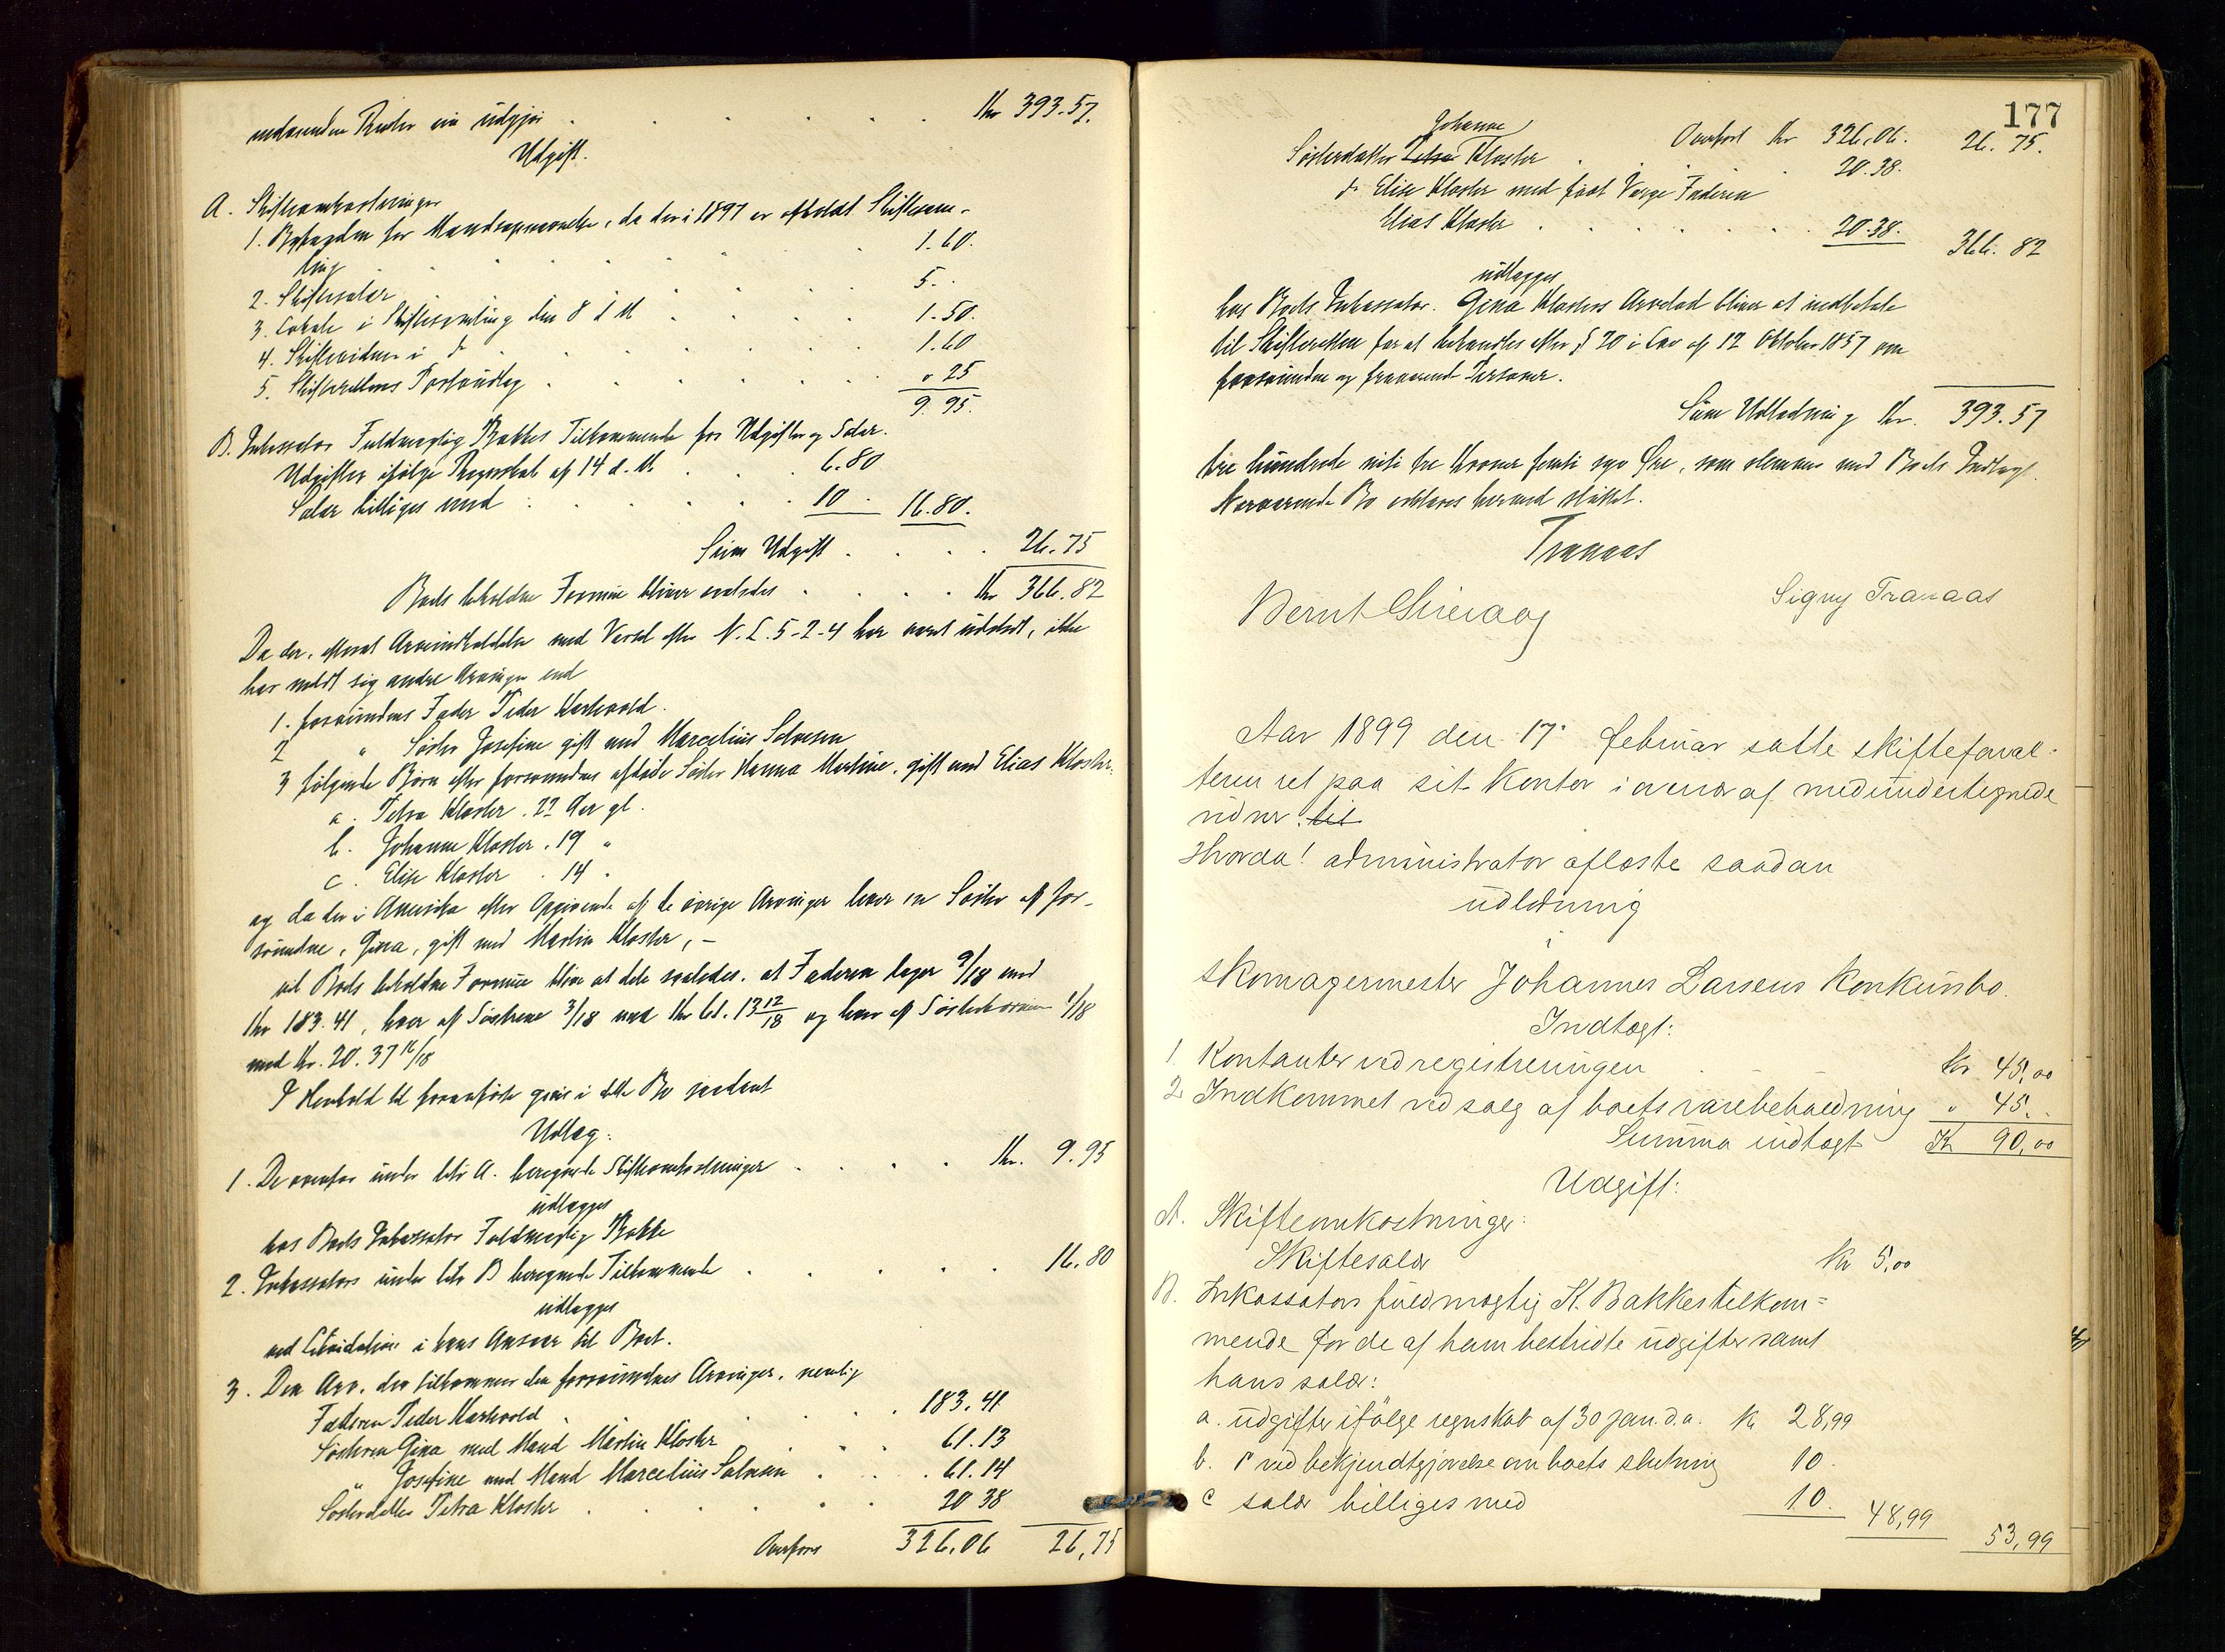 Kr 393.57.
Renter nu udgjør
Udgift.
A. Skifteomkostninger
1. for Mandsopnævnelse, da der i 1897 er afholdt Skiftesam-
ling 1.60.
2. Skiftesalær 5. .
3. Lokale i Skiftesamling den 8 d. M 1.50.
4. Skiftevidner i do 1.60
5. Skifterettens Portoudlæg " 25
9.95.
B. Inkassator Fuldmægtig Bakkes Tilkommende for Udgifter og Salær.
Udgifter ifølge Regnskab af 14 d. M. 6.80
Salær billiges med 10 . 16.80.
Sum Udgift 26.75
Boets beholdne Formue bliver saaledes Kr 366.82
Da der, efterat Arveindkaldelse med Varsel efter N. L. 5-2-4 har været udstedt, ikke
har meldt sig andre Arvinger end
1. forsvundnes Fader Peder
2 " Søster Josefine gift med Marcelius Salvesen
3 følgende Børn efter forsvundnes afdøde Søster Hanna Martine, gift med Elias Kloster.
a. Petra Kloster . 22 Aar gl.
b. Johanne Kloster . 19 "
c. Elise Kloster . 14 "
og da der i Amerika efter Opgivende af de øvrige Arvinger lever en Søster af for-
svundne, Gina, gift med Martin Kloster, -
vil Boets beholdne Formue blive at dele saaledes, at Faderen tager 9/18 med
Kr 183.41, hver af Søstrene 3/18 med Kr 61.13 12/18 og hver af Søsterbørnene 1/18
med Kr. 20.37 16/18
I Henhold til foranførte gjøres i dette Bo saadant
Udlæg:
1. De ovenfor under litr A. beregnede Skifteomkostninger Kr. 9.95
udlægges
hos Boets Inkassator Fuldmægtig Bakke
2. Inkassators under litr B beregnede Tilkommende 16.80
udlægges
ved Likvidation i hans Ansvar til Boet.
3. Den Arv, der tilkommer den forsvundnes Arvinger, nemlig
Faderen Peder 183.41
Søsteren Gina med Mand Martin Kloster 61.13
" Josefine med Mand Marcelius Salvesen 61.14
Søsterdatter Petra Kloster 20 38
Overføres 326.06 26,75
177
Overført Kr 326.06. 26.75.
Johanne
Søsterdatter Petra Kloster 20.38.
do Elise Kloster med født Værge Faderen
Elias Kloster 20.38. 366.82
udlægges
hos Boets Inkassator. Gina Klosters Arvelod bliver at indbetale
til Skifteretten for at behandles efter § 20 i Lov af 12 Oktober 1857 om
forsvundne og fraværende Personer.
Sum Udlodning Kr. 393.57
tre hundrede niti tre Kroner femti syv Øre, som stemmer med Boets Indtægt.
Nærværende Bo erklæres hermed sluttet.
Tranaas
Bernt Signy Tranaas
Aar 1899 den 17. februar satte skifteforval-
teren ret paa sit Kontor i overvær af medundertegnede
vidner til
Hvorda! administrator afløste saadan
udlodning
i
skomagermester Johannes Larsens Konkursbo.
Indtægt:
1 Kontanter ved registreringen Kr 45,00
2 Indkommet ved salg af boets varebeholdning " 45. .
Summa indtægt Kr 90,00
Udgift:
A. Skifteomkostninger:
Skiftesalær Kr 5,00
B. Inkassators fuldmægtig K. Bakkes tilkom=
mende for de af ham bestridte udgifter samt
hans salær:
a. udgifter ifølge regnskab af 30 jan. d. a. Kr 28,99
b. do ved bekjendtgjørelse om boets slutning 10.
c salær billiges med 10. 48,99 53,99